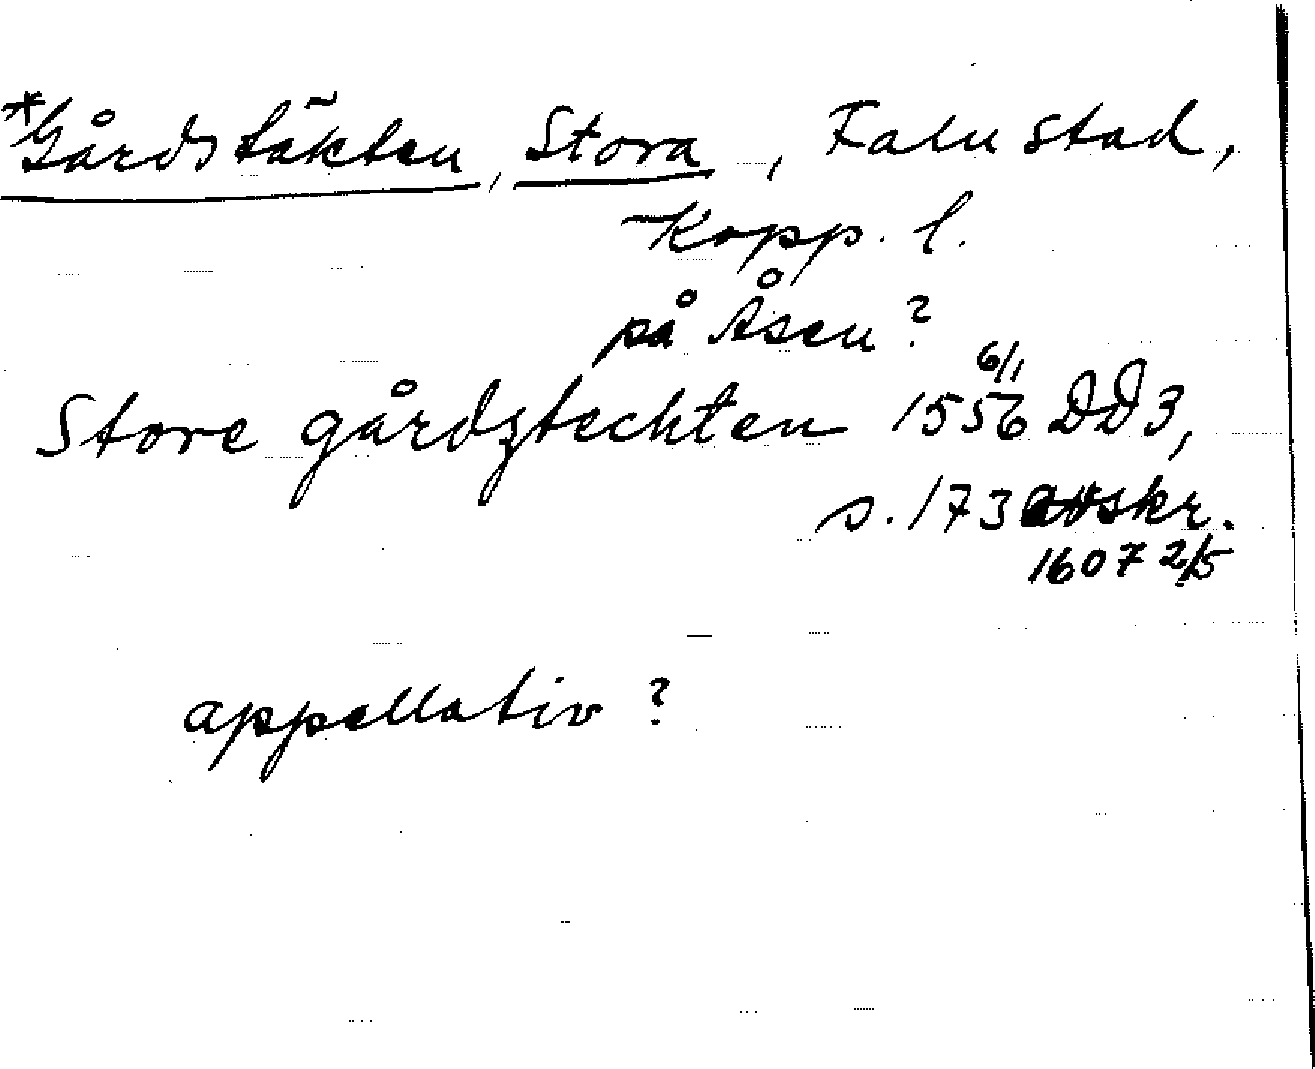 *Gårdstäkten, Stora, Falu stad,
Kopp. l.
på Åsen?
Store gårdztechten 1556 6/1 DD3,
s. 173 avskr.
1607 2/5
appellativ?